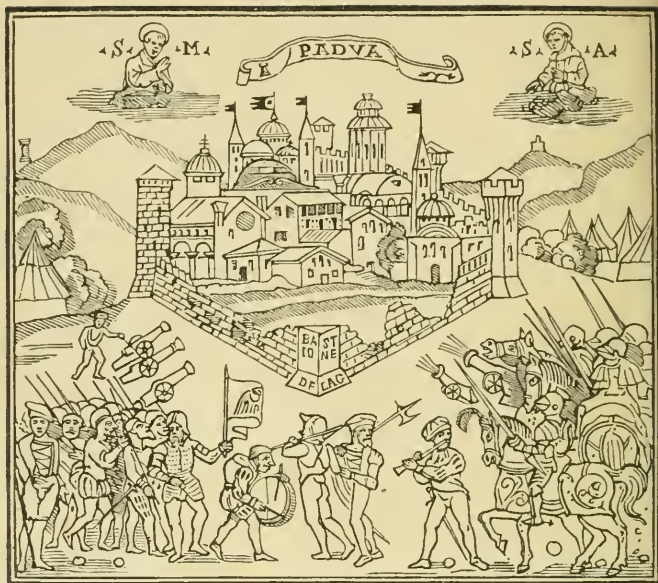 S M
PADVA
S A
BA ST
IO NE
DE LAG